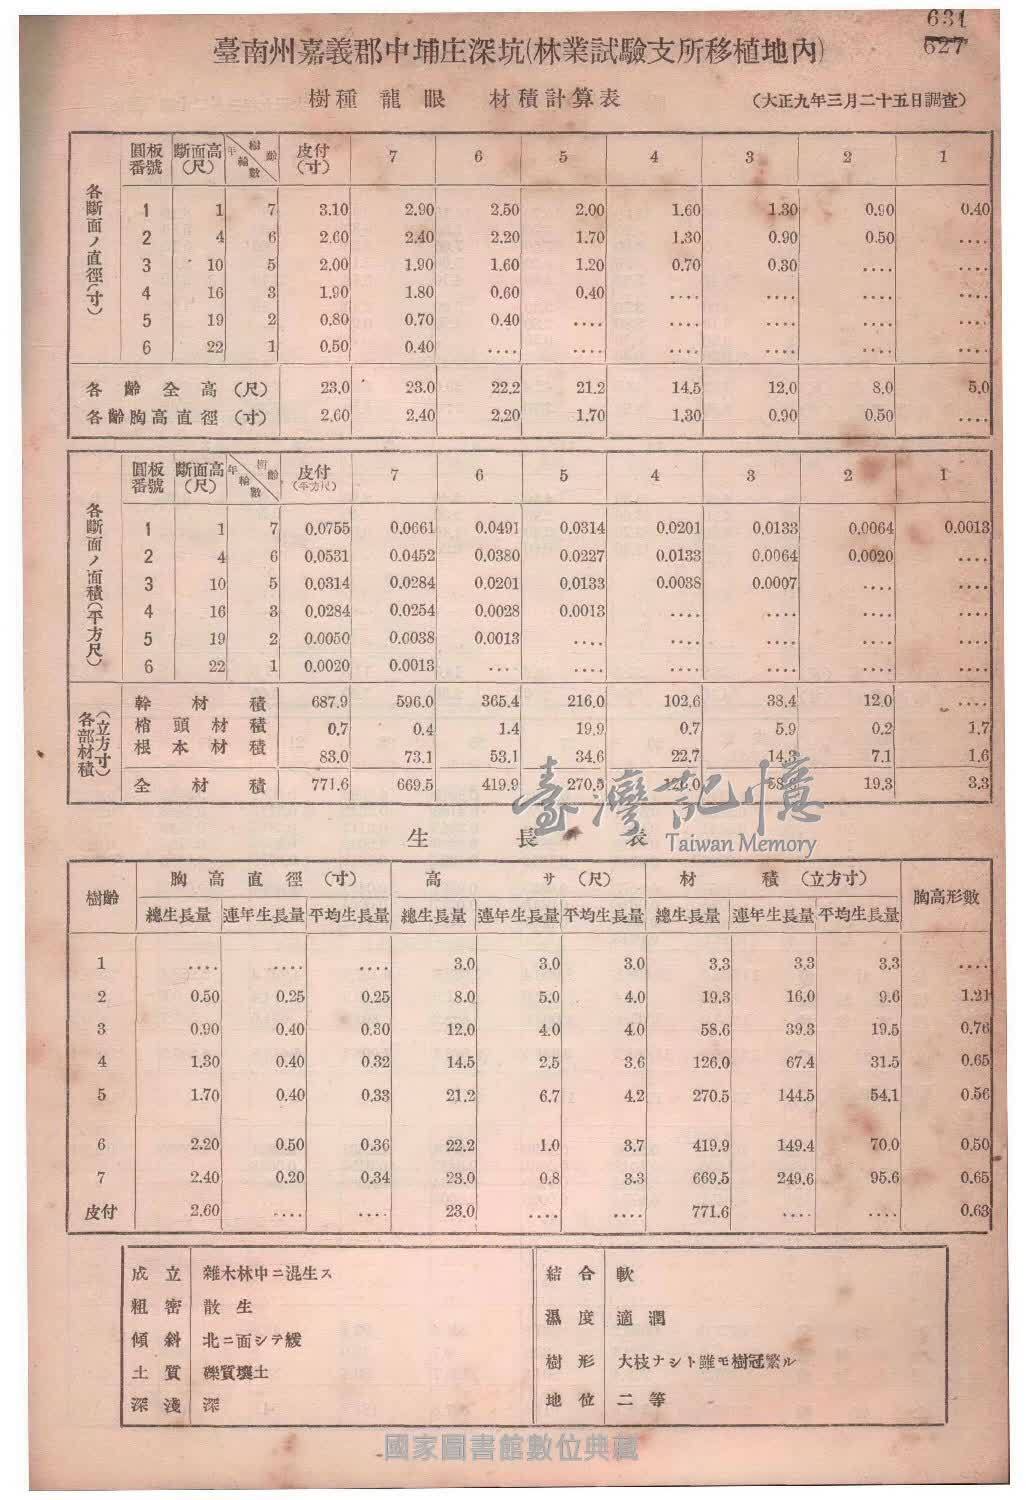 631
627
臺南州嘉義郡中埔庄深坑(林業試驗支所移植地內)
樹種 龍眼 材積計算表 (大正九年三月二十五日調査)
各斷面ノ直徑(寸)
圓板番號 斷面高(尺) 年輪數 樹齡 皮付(寸) 7 6 5 4 3 2 1
1 1 7 3.10 2.90 2.50 2.00 1.60 1.30 0.90 0.40
2 4 6 2.60 2.40 2.20 1.70 1.30 0.90 0.50 ....
3 10 5 2.00 1.90 1.60 1.20 0.70 0.30 .... ....
4 16 3 1.90 1.80 0.60 0.40 .... .... .... ....
5 19 2 0.80 0.70 0.40 .... .... .... .... ....
6 22 1 0.50 0.40 .... .... .... .... .... ....
各齡全高(尺) 23.0 23.0 22.2 21.2 14.5 12.0 8.0 5.0
各齡胸高直徑(寸) 2.60 2.40 2.20 1.70 1.30 0.90 0.50 ....
各斷面ノ面積(平方尺)
圓板番號 斷面高(尺) 年輪數 樹齡 皮付(平方尺) 7 6 5 4 3 2 1
1 1 7 0.0755 0.0661 0.0491 0.0314 0.0201 0.0133 0.0064 0.0013
2 4 6 0.0531 0.0452 0.0380 0.0227 0.0133 0.0064 0.0020 ....
3 10 5 0.0314 0.0284 0.0201 0.0133 0.0038 0.0007 .... ....
4 16 3 0.0284 0.0254 0.0028 0.0013 .... .... .... ....
5 19 2 0.0050 0.0038 0.0013 .... .... .... .... ....
6 22 1 0.0020 0.0013 ... .... .... .... .... ....
各部材積(立方寸)
幹材積 687.9 596.0 365.4 216.0 102.6 38.4 12.0 ....
梢頭材積 0.7 0.4 1.4 19.9 0.7 5.9 0.2 1.7
根本材積 83.0 73.1 53.1 34.6 22.7 14.3 7.1 1.6
全材積 771.6 669.5 419.9 270.5 126.0 58.6 19.3 3.3
臺灣記憶
Taiwan Memory
生長表
樹齡 胸高直徑(寸) 高サ(尺) 材積(立方寸) 胸高形數
總生長量 連年生長量 平均生長量 總生長量 連年生長量 平均生長量 總生長量 連年生長量 平均生長量
1 .... .... .... 3.0 3.0 3.0 3.3 3.3 3.3 ....
2 0.50 0.25 0.25 8.0 5.0 4.0 19.3 16.0 9.6 1.21
3 0.90 0.40 0.30 12.0 4.0 4.0 58.6 39.3 19.5 0.76
4 1.30 0.40 0.32 14.5 2.5 3.6 126.0 67.4 31.5 0.65
5 1.70 0.40 0.33 21.2 6.7 4.2 270.5 144.5 54.1 0.56
6 2.20 0.50 0.36 22.2 1.0 3.7 419.9 149.4 70.0 0.50
7 2.40 0.20 0.34 23.0 0.8 3.3 669.5 249.6 95.6 0.65
皮付 2.60 .... .... 23.0 .... .... 771.6 .... .... 0.63
成立 雜木林中ニ混生ス
粗密 散生
傾斜 北ニ面シテ緩
土質 礫質壤土
深淺 深
結合 軟
濕度 適潤
樹形 大枝ナシト雖モ樹冠繁ル
地位 二等
國家圖書館數位典藏